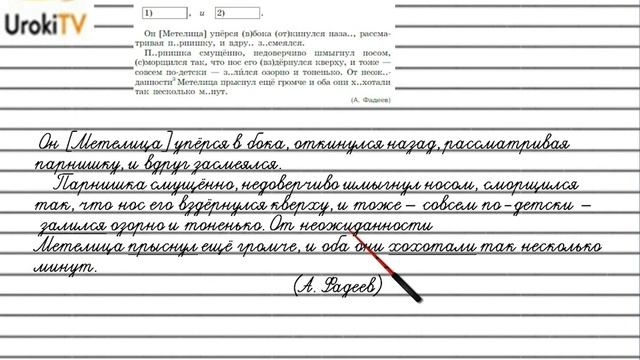 UrokiTV
1) , и 2) .
Он [Метелица] упёрся (в)бока (от)кинулся наза.., рассма-
тривая п..рнишку, и вдру.. з..смеялся.
П..рнишка смущённо, недоверчиво шмыгнул носом,
(с)морщился так, что нос его (вз)дёрнулся кверху, и тоже —
совсем по-детски — з..ли́лся озорно и тоненько. От неож..-
данности² Метелица прыснул ещё громче и оба они х..хотали
так несколько м..нут.
(А. Фадеев)
Он [Метелица] упёрся в бока, откинулся назад, рассматривая
парнишку, и вдруг засмеялся.
Парнишка смущённо, недоверчиво шмыгнул носом, сморщился
так, что нос его вздёрнулся кверху, и тоже – совсем по-детски –
залился озорно и тоненько. От неожиданности
Метелица прыснул ещё громче, и оба они хохотали так несколько
минут.
(А. Фадеев)